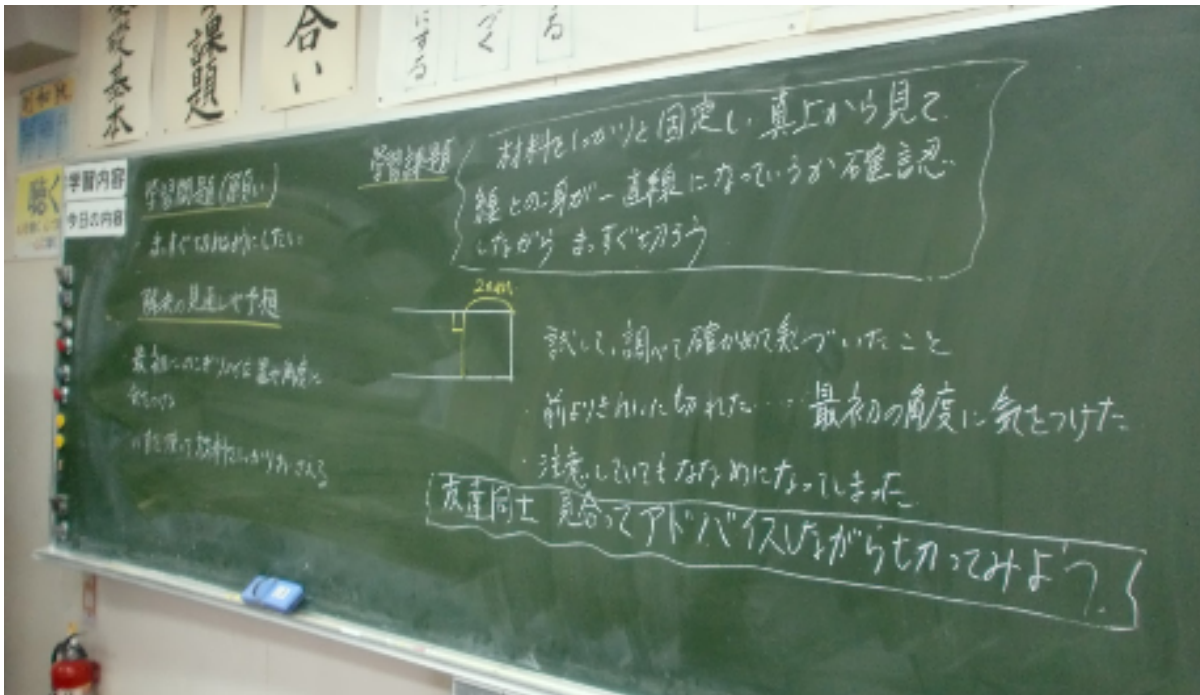 課題
合い
にする
づく
る
基本
聴く
学習内容
今日の内容
学習問題(願い)
まっすぐ切れるようにしたい
解決の見通しや予想
・最初にのこぎりの
角度に
気をつける
材料をしっかりおさえる
学習課題
材料をしっかりと固定し、真上から見て
線とのこ身が一直線になっているか確認
しながら まっすぐ切ろう
20mm
試して、調べて確かめて気づいたこと
・前よりきれいに切れた……最初の角度に気をつけた
・注意していてもななめになってしまった
友達同士 見合ってアドバイスしながら切ってみよう